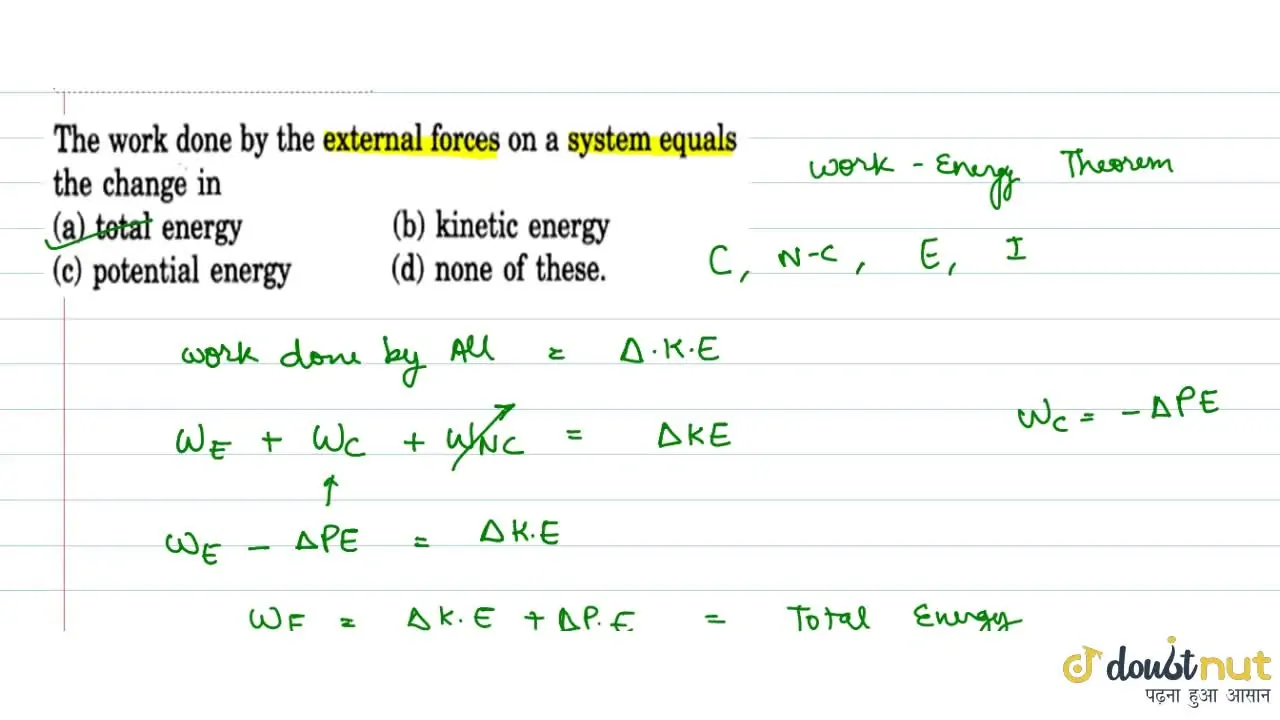 The work done by the external forces on a system equals
the change in
(a) total energy (b) kinetic energy
(c) potential energy (d) none of these.
Work - Energy Theorem
C, N-C, E, I
work done by All = Δ.K.E
WE + WC + WNC = ΔKE
WC = - ΔPE
WE - ΔPE = ΔK.E
WE = ΔK.E + ΔP.E = Total Energy
doubtnut
पढ़ना हुआ आसान